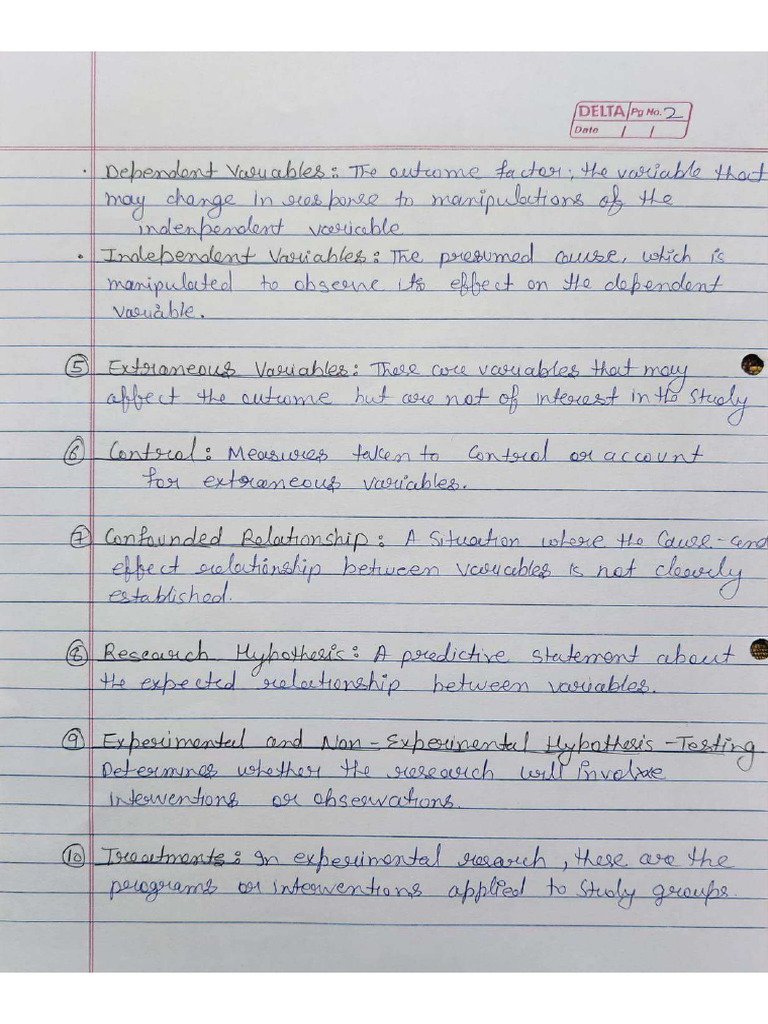 DELTA Pg No. 2
Date / /
• Dependent Variables: The outcome factor; the variable that
may change in response to manipulations of the
indenpendent variable
• Independent Variables: The presumed cause, which is
manipulated to observe its effect on the dependent
variable.
5 Extraneous Variables: These are variables that may
affect the outcome but are not of interest in the study
6 Control: Measures taken to control or account
for extraneous variables.
7 Confounded Relationship: A Situation where the Cause-and
effect relationship between variables is not clearly
established.
8 Research Hypothesis: A predictive statement about
the expected relationship between variables.
9 Experimental and Non-Experimental Hypothesis-Testing
Determines whether the research will involve
interventions or observations.
10 Treatments: In experimental research, these are the
programs or interventions applied to study groups.